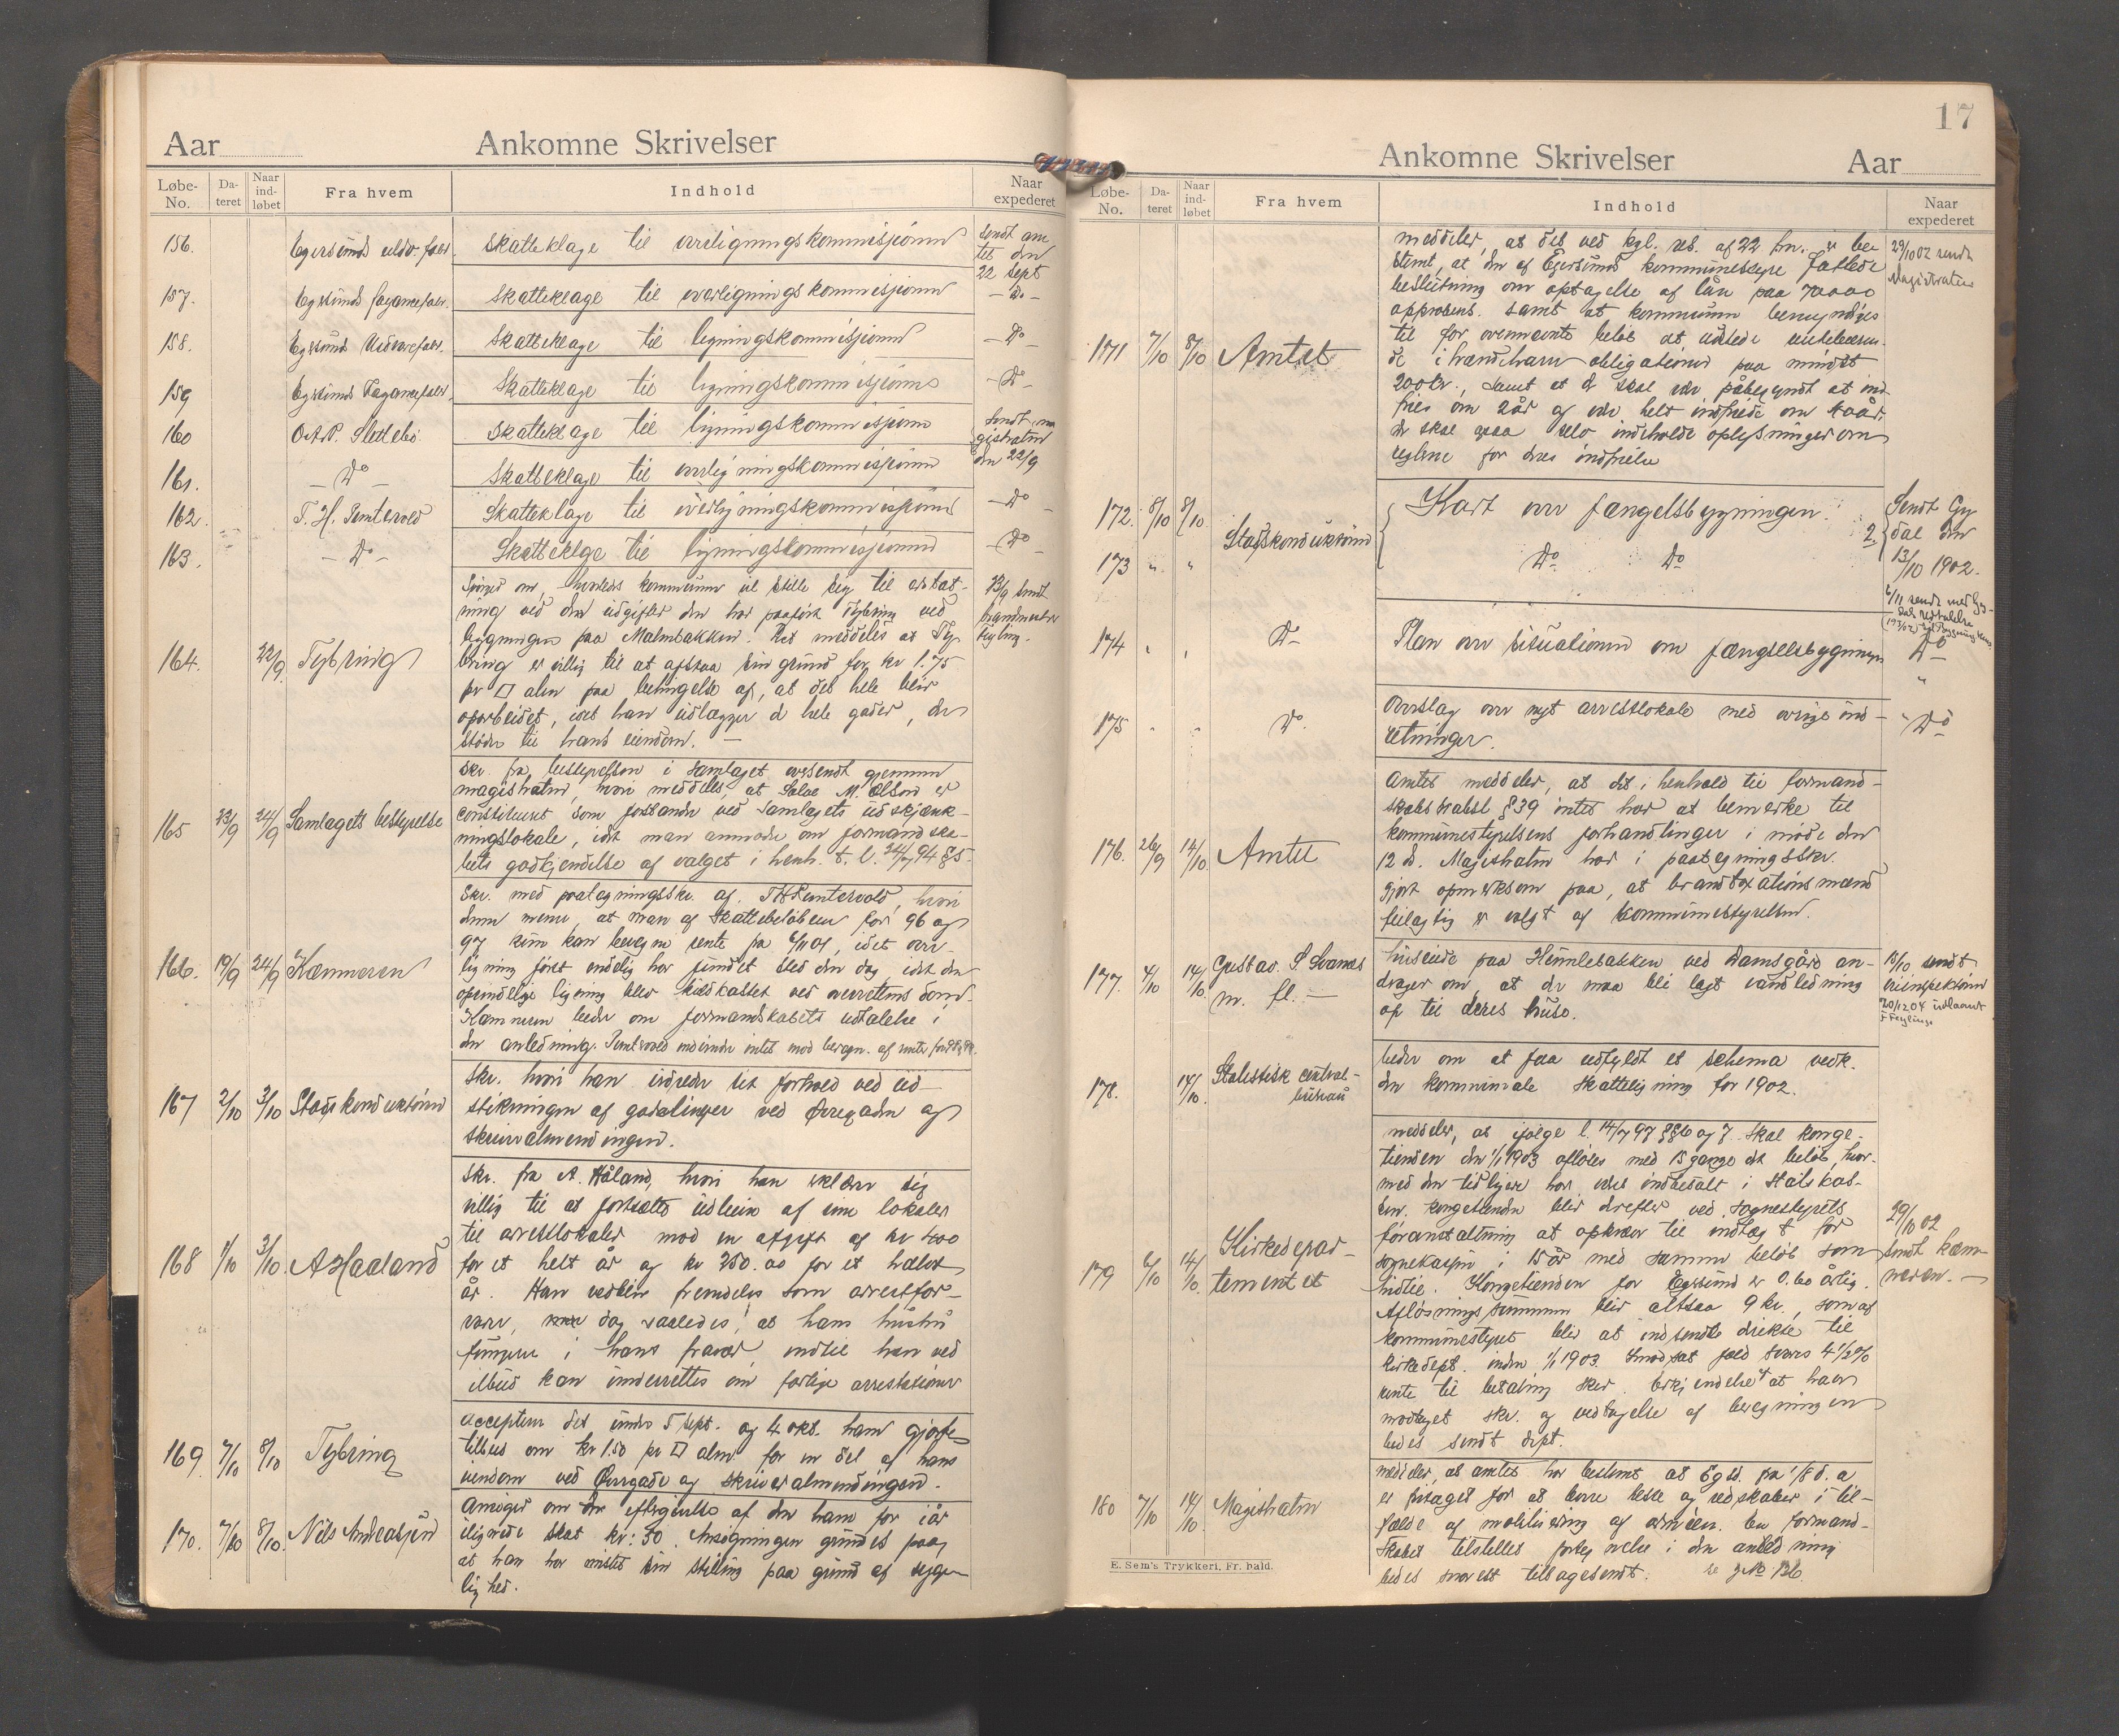 Aar
Ankomne Skrivelser
Løbe-No.
Da-teret
Naar ind-løbet
Fra hvem
Indhold
Naar expederet
156.
Egersunds uldv. fabr.
Skatteklage til overligningskommisjonen
Sendt am
tet den
22 sept
157.
Egersunds fayancefabr.
Skatteklage til overligningskommisjonen
- Do -
158.
Skatteklage til ligningskommisjonen
- Do -
159
Egersunds Fayancefabr.
Skatteklage til ligningskommisjonen
- Do -
160
Skatteklage til ligningskommisjonen
Sendt ma
gistraten
den 22/9
161.
- Do -
Skatteklage til overligningskommisjonen
162.
T. H. Puntervold
Skatteklage til overligningskommisjonen
- Do -
163.
- Do -
Skatteklge til ligningskommisjonen
- Do -
164.
22/9.
Tybring
Spørger om, hvorledes kommunen vil stille sig til erstat-
ning ved den udgifter den har paaført Tybring ved
bygningen paa Malmbakken. Det meddeles at Ty
bring er villig til at afstaa sin grund for kr 1.75
pr □ alen paa betingelse af, at det hele blir
oparbeidet, idet han udlægger de hele gader, der
støder til hans eiendom. —
23/9 sendt
165
23/9
24/9
Samlagets bestyrelse
Skr. fra bestyrelsen i samlaget oversendt gjennem
magistraten, hvori meddeles, at M. Olsen er
constitueret som forstander ved Samlagets udskjænk-
ningslokale, idet man anmoder om formandska-
bets godkjendelse af valget i henh. t. l. 24/7 94 § 5.
166.
19/9
24/9
Kæmneren
Skr. med paategningsskr. af TH Puntervold, hvori
denne mener, at man af skattebeløbene for 96 og
97 kun kan beregne rente fra 6/11 01, idet over-
ligning først endelig har fundet sted den dag, idet den
oprindelige ligning blev kuldkastet ved overrettens dom.
Kæmneren beder om formandskabets udtalelse i
den anledning.
167
2/10
3/10
Stadskonduktøren
Skr. hvori han udreder sit forhold ved ud-
stikningen af gadelinjer ved Øvregaden og
skriveralmendingen.
168
1/10
3/10.
A Haaland
Skr. fra A. Håland, hvori han erklærer sig
villig til at fortsætte udleien af sine lokaler
til arrestlokaler mod en afgift af kr 400
for et helt år og kr 250.00 for et halvt
år. Han vedblir fremdeles som arrestfor-
varer, dog saaledes, at hans hustru
fungerer i hans fravær, indtil han ved
ilbud kan underrettes om farlige arrestationer
169.
7/10
8/10
Tybring
accepterer det under 5 sept. og 4 okt. ham gjorte
tilbud om kr 1.50 pr □ alen for en del af hans
eiendom ved Øvregade og skriveralmendingen.
170.
7/10
8/10.
Nils Andreassen
Ansøger om eftergivelse af den ham for i år
ilignede skat kr: 30. Ansøgningen grundes paa,
at han har mistet sin stilling paa grund af syge-
lighed.
17
Ankomne Skrivelser
Aar
Løbe-No.
Da-teret
Naar ind-løbet
Fra hvem
Indhold
Naar expederet
171
7/10
8/10
Amtet
meddeler, at det ved kgl. res. af 22 fm. er be
stemt, at den af Egersunds kommunestyre fattede
beslutning om optagelse af lån paa 70000
approberes. samt at kommunen bemyndiges
til for ovennævnte beløb at udstede rentebæren-
de ihændehaver obligationer paa mindst
200 kr., samt at de skal være påbegyndt at ind
fries om 2 år og være helt indfriede om 40 år.
de skal ogsaa selv indeholde oplysninger om
reglene for deres indfrielse
29/10 02 sendt
Magistraten
172.
8/10
8/10.
Stadskonduktøren
Kart over fængelsbygningen.
2.
Sendt Gy
dal den
13/10 1902.
173
"
"
Do
Do
174
Do
Plan over situationen om fængselsbygningen
6/11 sendt med Gy-
dals udtalelse
Do
175
Do.
Overslag over nyt arrestlokale med øvrige ind-
retninger.
Do
176.
26/9
14/10.
Amtet
Amtet meddeler, at det i henhold til formand-
skabslovens § 39 intet har at bemerke til
kommunestyrelsens forhandlinger i møde den
12 d. Magistraten har i paategningsskr.
gjort opmerksom paa, at brandtaxationsmænd
feilagtig er valgt af kommunestyrelsen.
177.
4/10
14/10.
Gustav S. Svanes
m. fl. —
huseiere paa Hümlebakken ved Damsgård an-
drager om, at der maa bli lagt vandledning
op til deres huse.
15/10 sendt
20/12 04 udlaant
F Feyling
178.
14/10.
Statistisk central-
büreau
beder om at faa udfyldt et schema vedk.
den kommunale skatteligning for 1902.
179
6/10
14/10.
Kirkedepar-
tementet
meddeler, at ifølge l. 14/7 97 §§ 6 og 7 skal konge-
tienden den 1/1 1903 afløses med 15 gange det beløb, hvor-
med den tidligere har været indbetalt i Statskas-
sen. Kongetienden blir derefter ved sognestyrets
foranstaltning at opkræve til indtægt for
sognekassen i 15 år med samme beløb som
hidtil. Kongetienden for Egersund er 0.60 årlig.
Afløsningssummen blir altsaa 9 kr., som af
kommunestyret blir at indsende direkte til
kirkedept. inden 1/1 1903. I modsat fald svares 4 1/2 %
rente til betaling sker. Erkjendelse at have
modtaget skr. og vedtagelse af beregningen
bedes sendt dept.
29/10 02
sendt kæm-
neren. —
180
7/10
14/10.
Magistraten
meddeler, at amtet har bestemt at Egsd. fra 1/8 d. a
er fritaget for at levere heste og redskaber i til-
fælde af mobilisering af armeen. En formand-
skabet tilstillet fortegnelse i den anledning
bedes snarest tilbagesendt. se No 136.
E. Sem's Trykkeri, Fr. hald.